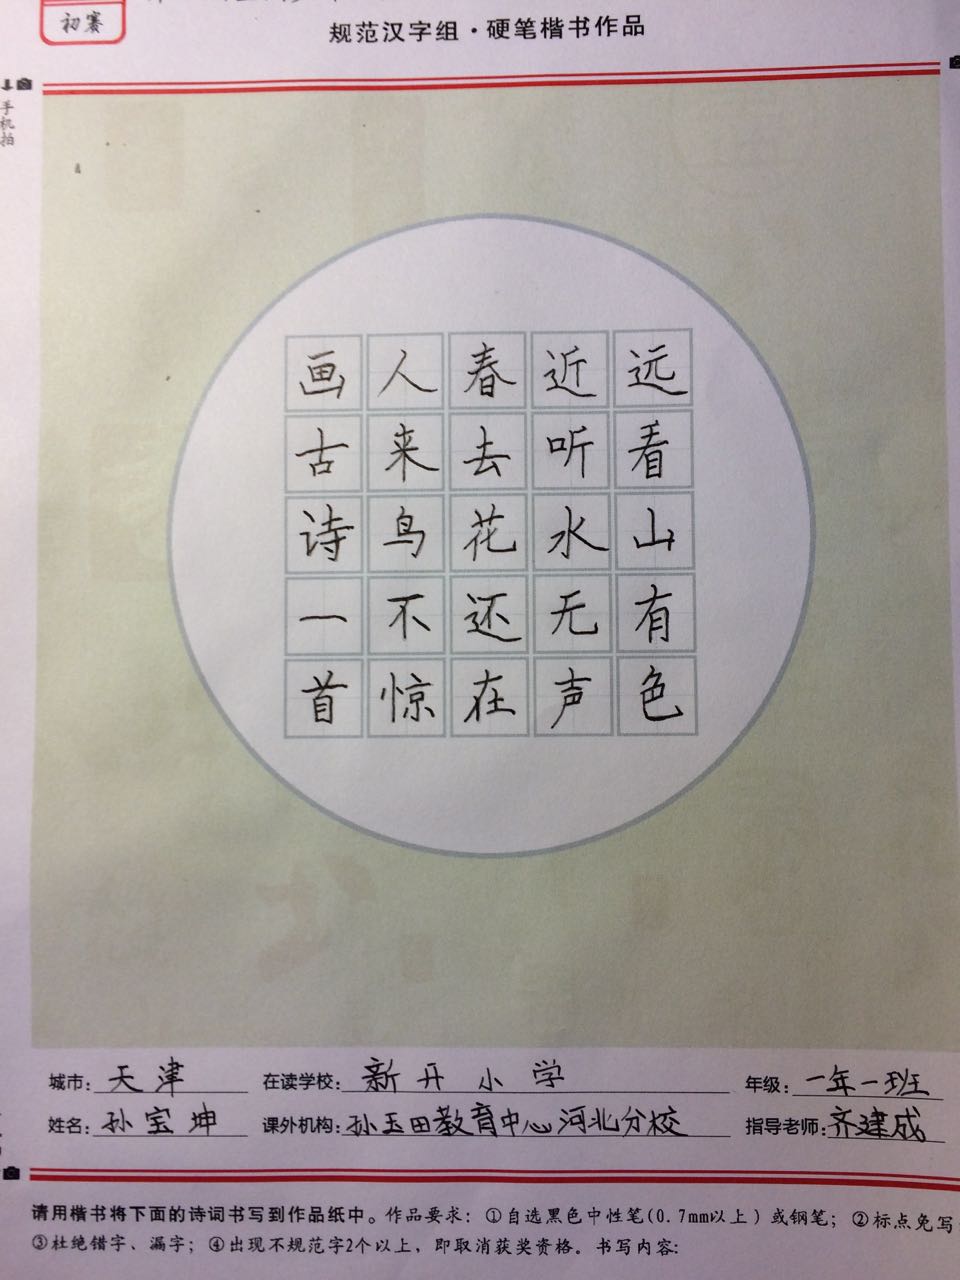 初赛
规范汉字组·硬笔楷书作品
手机拍
远看山有色
近听水无声
春去花还在
人来鸟不惊
画古诗一首
城市：天津 在读学校：新开小学 年级：一年一班
姓名：孙宝坤 课外机构：孙玉田教育中心河北分校 指导老师：齐建成
请用楷书将下面的诗词书写到作品纸中。作品要求：①自选黑色中性笔(0.7mm以上）或钢笔；②标点免写
③杜绝错字、漏字；④出现不规范字2个以上，即取消获奖资格。书写内容：